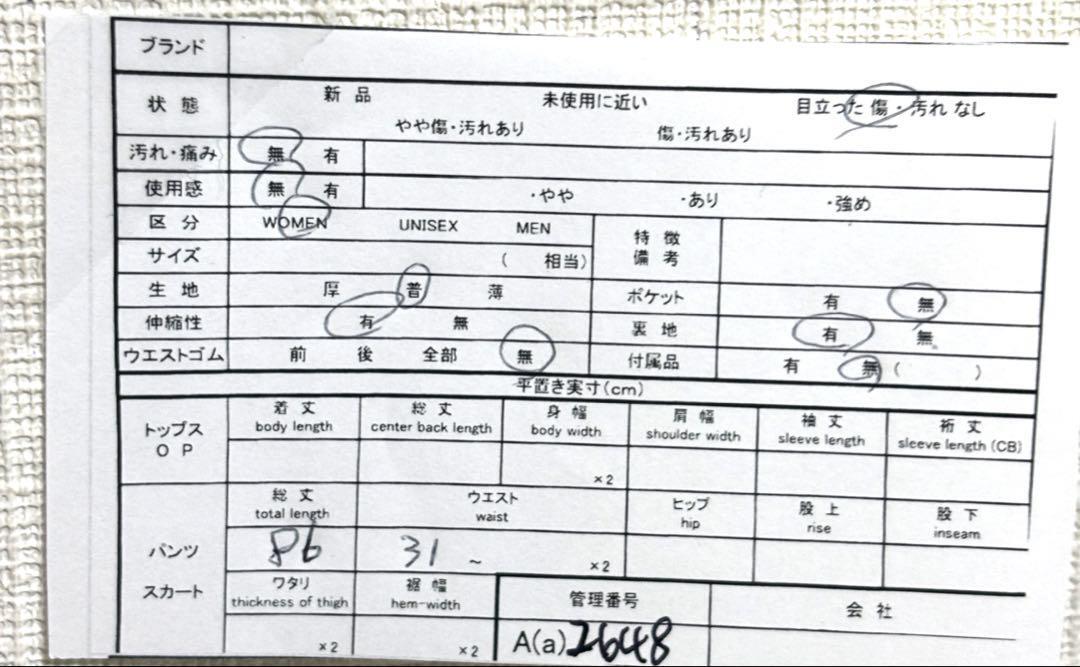 ブランド
状態 新品 未使用に近い 目立った傷・汚れなし
やや傷・汚れあり 傷・汚れあり
汚れ・痛み 無 有
使用感 無 有 ・やや ・あり ・強め
区分 WOMEN UNISEX MEN 特徴
備考
サイズ ( 相当)
生地 厚 普 薄 ポケット 有 無
伸縮性 有 無 裏地 有 無
ウエストゴム 前 後 全部 無 付属品 有 無 ( )
平置き実寸(cm)
トップス
OP
着丈 総丈 身幅 肩幅 袖丈 裄丈
body length center back length body width shoulder width sleeve length sleeve length (CB)
×2
パンツ
スカート
総丈 ウエスト ヒップ 股上 股下
total length waist hip rise inseam
86 31 ~ ×2
ワタリ 裾幅 管理番号 会社
thickness of thigh hem-width
×2 ×2 A(a) 2648